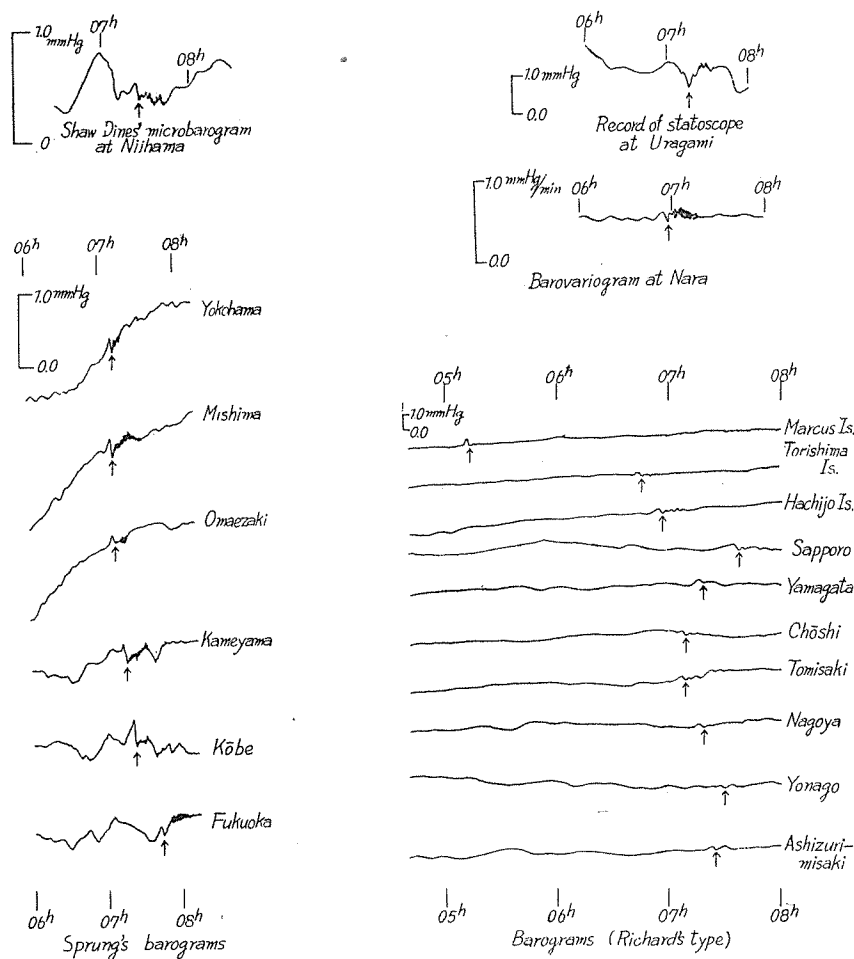 1.0 mmHg
07h
08h
0
Shaw Dines' microbarogram
at Niihama
06h
07h
08h
1.0 mmHg
0.0
Record of statoscope
at Uragami
1.0 mmHg/min
06h
07h
08h
0.0
Barovariogram at Nara
06h 07h 08h
1.0 mmHg
0.0
Yokohama
Mishima
Omaezaki
Kameyama
Kōbe
Fukuoka
06h 07h 08h
Sprung's barograms
05h 06h 07h 08h
1.0 mmHg
0.0
Marcus Is.
Torishima
Is.
Hachijo Is.
Sapporo
Yamagata
Chōshi
Tomisaki
Nagoya
Yonago
Ashizuri-
misaki
05h 06h 07h 08h
Barograms (Richard's type)